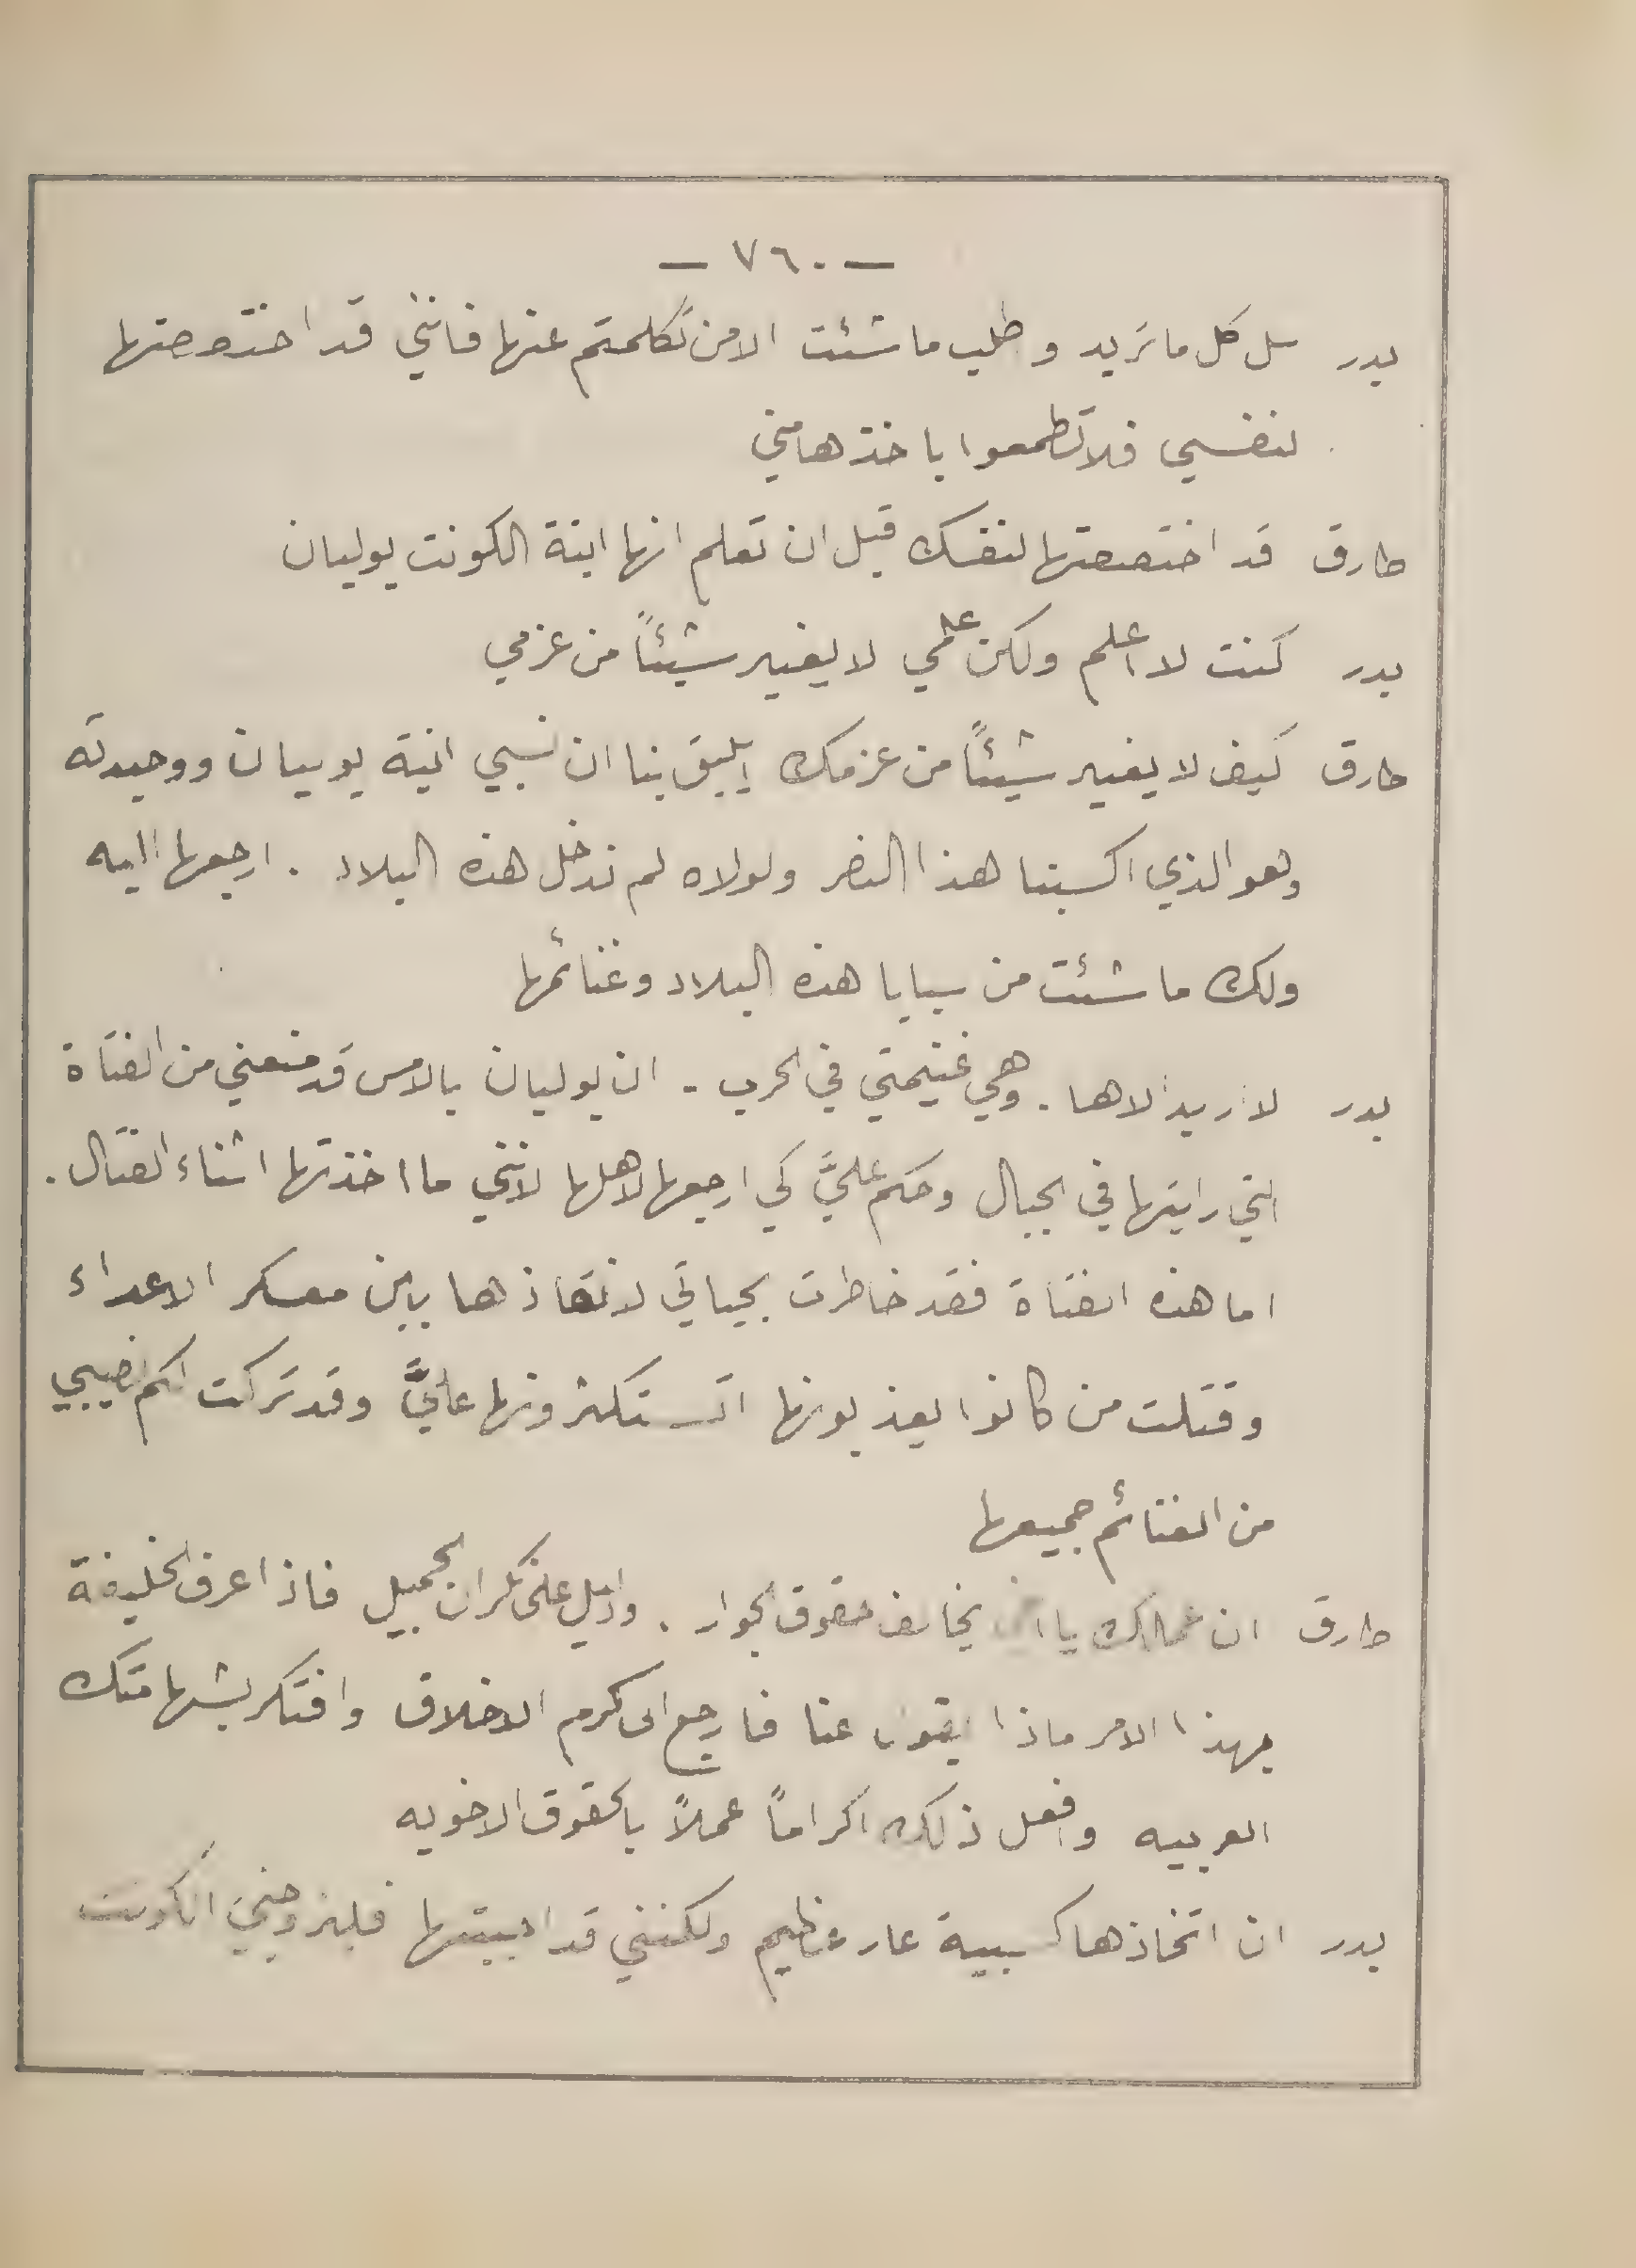 — ٧٦٠ —
بدر سل كل ما تريد وطلب ما شئت الا من تكلمتم عنها فانني قد اختصصتها
لنفسي فلا تطمعوا باخذها مني
طارق قد اختصصتها لنفسك قبل ان تعلم انها ابنة الكونت يوليان
بدر كنت لا اعلم ولكن علمي لا يغير شيئاً من عزمي
طارق كيف لا يغير شيئاً من عزمك ايليق بنا ان نسبي ابنة يوليان ووحيدته
وهو الذي اكسبنا هذا النصر ولولاه لم ندخل هذه البلاد . ارجعها اليه
ولك ما شئت من سبايا هذه البلاد وغنائمها
بدر لا اريد الاها . وهي غنيمتي في الحرب - ان يوليان بالامس قد منعني من الفتاة
التي رايتها في الجبال وحكم عليَّ كي ارجعها لاهلها لانني ما اخذتها اثناء القتال .
اما هذه الفتاة فقد خاطرت بحياتي لانقاذها من بين معسكر الاعداء
وقتلت من كانوا يعذبونها اتستكثرونها عليَّ وقد تركت لكم نصيبي
من الغنائم جميعها
طارق ان عملك يا اخي يخالف حقوق الجوار . وادل على نكران الجميل فاذا عرف الخليفة
بهذا الامر ماذا يقول عنا فارجع الى كرم الاخلاق وافتكر بشهامتك
العربيه وافعل ذلك اكراماً عملاً بالحقوق الاخويه
بدر ان اتخاذها كسبية عار عظيم ولكنني قد احببتها فليزوجنيَ الكونت